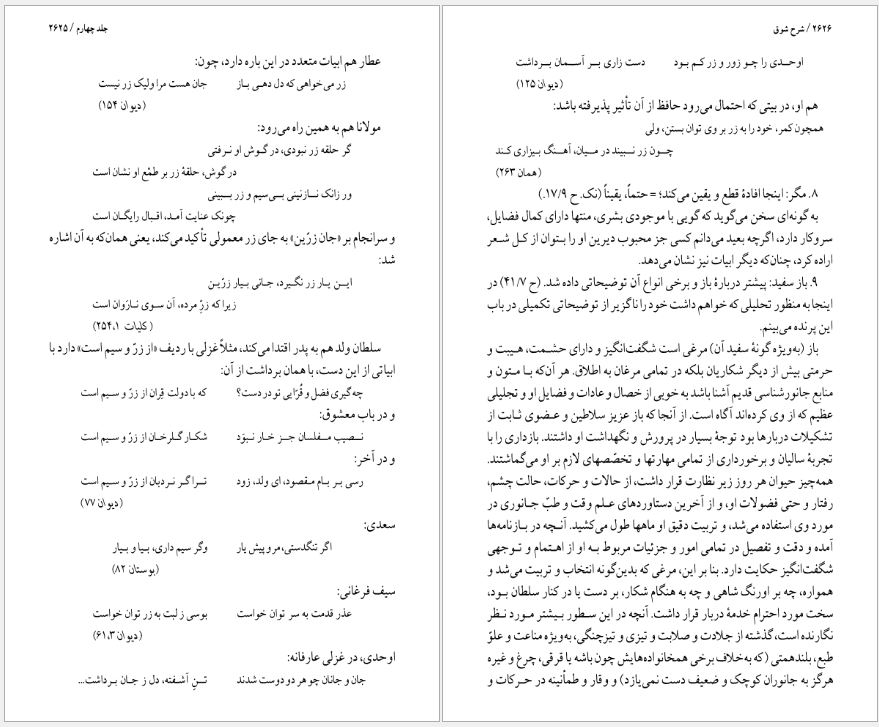 جلد چهارم / ۲۶۲۵
عطار هم ابیات متعدد در این باره دارد، چون:
زر می‌خواهی که دل دهی باز جان هست مرا ولیک زر نیست
(دیوان ۱۵۴)
مولانا هم به همین راه می‌رود:
گر حلقه زر نبودی، در گوش او نرفتی
در گوش، حلقهٔ زر بر طمع او نشان است
ور زانک نازنینی بی‌سیم و زر ببینی
چونک عنایت آمد، اقبال رایگان است
و سرانجام بر «جان زرّین» به جای زر معمولی تأکید می‌کند، یعنی همان‌که به آن اشاره
شد:
این یار زر نگیرد، جانی بیار زرّین
زیرا که زرِ مرده، آن سوی ناروان است
(کلیات ۲۵۴،۱)
سلطان ولد هم به پدر اقتدا می‌کند، مثلاً غزلی با ردیف «از زرّ و سیم است» دارد با
ابیاتی از این دست، با همان برداشت از آن:
چه گیری فضل و قُرّایی تو در دست؟ که با دولت قِران از زرّ و سیم است
و در باب معشوق:
نصیب مفلسان جز خار نبوَد شکار گلرخان از زرّ و سیم است
و در آخر:
رسی بر بام مقصود، ای ولد، زود تو را گر نردبان از زرّ و سیم است
(دیوان ۷۷)
سعدی:
اگر تنگدستی، مرو پیش یار وگر سیم داری، بیا و بیار
(بوستان ۸۲)
سیف فرغانی:
عذر قدمت به سر توان خواست بوسی ز لبت به زر توان خواست
(دیوان ۶۱،۳)
اوحدی، در غزلی عارفانه:
جان و جانان چو هر دو دوست شدند تنِ آشفته، دل ز جان برداشت...
۲۶۲۶ / شرح شوق
اوحدی را چو زور و زر کم بود دست زاری بر آسمان برداشت
(دیوان ۱۲۵)
هم او، در بیتی که احتمال می‌رود حافظ از آن تأثیر پذیرفته باشد:
همچون کمر، خود را به زر بر وی توان بستن، ولی
چون زر نبیند در میان، آهنگ بیزاری کند
(همان ۲۶۳)
۸. مگر: اینجا افادهٔ قطع و یقین می‌کند؛ = حتماً، یقیناً (نک. ح ۱۷/۹.)
به گونه‌ای سخن می‌گوید که گویی با موجودی بشری، منتها دارای کمال فضایل،
سروکار دارد، اگرچه بعید می‌دانم کسی جز محبوب دیرین او را بتوان از کل شعر
اراده کرد، چنان‌که دیگر ابیات نیز نشان می‌دهد.
۹. باز سفید: پیشتر دربارهٔ باز و برخی انواع آن توضیحاتی داده شد. (ح ۴۱/۷) در
اینجا به منظور تحلیلی که خواهم داشت خود را ناگزیر از توضیحاتی تکمیلی در باب
این پرنده می‌بینم.
باز (به‌ویژه گونهٔ سفید آن) مرغی است شگفت‌انگیز و دارای حشمت، هیبت و
حرمتی بیش از دیگر شکاریان بلکه در تمامی مرغان به اطلاق. هر آن‌که با متون و
منابع جانورشناسی قدیم آشنا باشد به خوبی از خصال و عادات و فضایل او و تجلیلی
عظیم که از وی کرده‌اند آگاه است. از آنجا که باز عزیز سلاطین و عضوی ثابت از
تشکیلات دربارها بود توجهٔ بسیار در پرورش و نگهداشت او داشتند. بازداری را با
تجربهٔ سالیان و برخورداری از تمامی مهارتها و تخصّصهای لازم بر او می‌گماشتند.
همه‌چیز حیوان هر روز زیر نظارت قرار داشت، از حالات و حرکات، حالت چشم،
رفتار و حتی فضولات او، و از آخرین دستاوردهای علم وقت و طبّ جانوری در
مورد وی استفاده می‌شد، و تربیت دقیق او ماهها طول می‌کشید. آنچه در بازنامه‌ها
آمده و دقت و تفصیل در تمامی امور و جزئیات مربوط به او از اهتمام و توجهی
شگفت‌انگیز حکایت دارد. بنا بر این، مرغی که بدین‌گونه انتخاب و تربیت می‌شد و
همواره، چه بر اورنگ شاهی و چه به هنگام شکار، بر دست یا در کنار سلطان بود،
سخت مورد احترام خدمهٔ دربار قرار داشت. آنچه در این سطور بیشتر مورد نظر
نگارنده است، گذشته از جلادت و صلابت و تیزی و تیزچنگی، به‌ویژه مناعت و علوّ
طبع، بلندهمتی (که به‌خلاف برخی همخانواده‌هایش چون باشه یا قرقی، چرغ و غیره
هرگز به جانوران کوچک و ضعیف دست نمی‌یازد) و وقار و طمأنینه در حرکات و